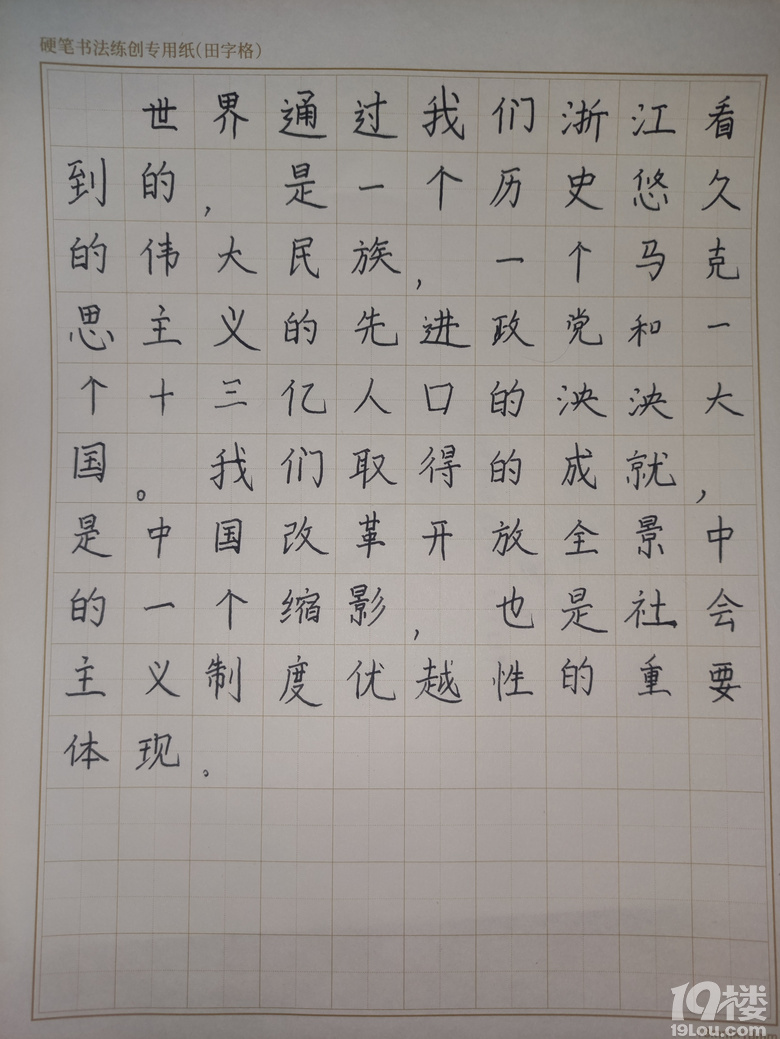 硬笔书法练创专用纸(田字格)
世界通过我们浙江看
到的，是一个历史悠久
的伟大民族，一个马克
思主义的先进政党和一
个十三亿人口的泱泱大
国。我们取得的成就，
是中国改革开放全景中
的一个缩影，也是社会
主义制度优越性的重要
体现。
19楼
19Lou.com